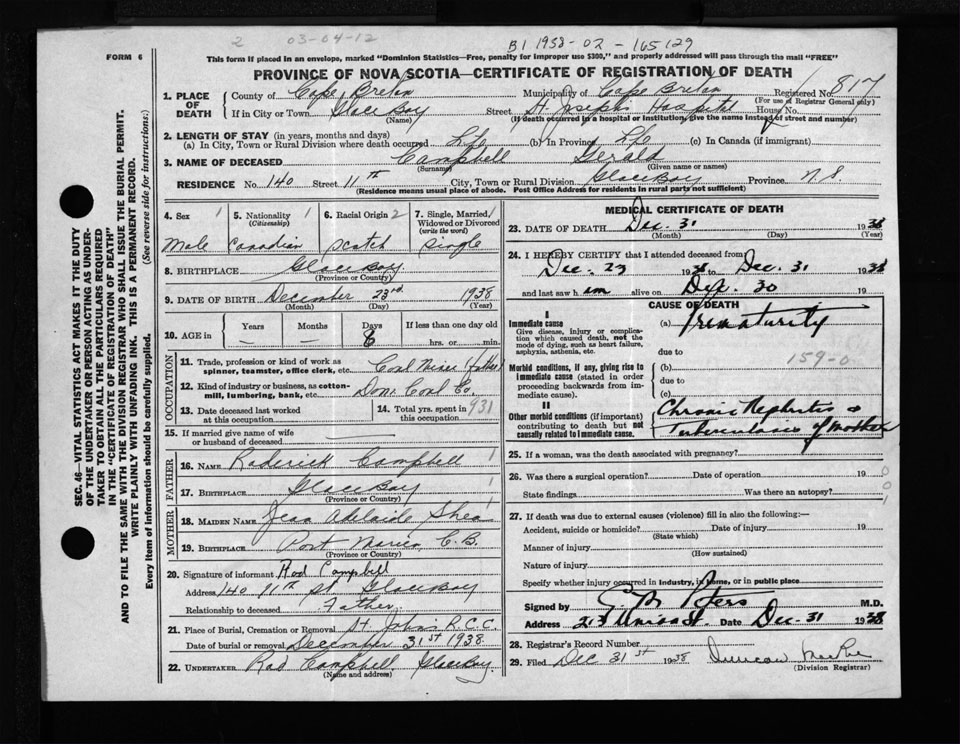 2 03-04-12 B1 1938-02-165129
FORM 6
This form if placed in an envelope, marked "Dominion Statistics—Free, penalty for improper use $300," and properly addressed will pass through the mail "FREE"
PROVINCE OF NOVA SCOTIA—CERTIFICATE OF REGISTRATION OF DEATH
1. PLACE OF DEATH { County of Cape Breton Municipality of Cape Breton Registered No. 817
(For use of Registrar General only)
If in City or Town Glace Bay Street St. Joseph's Hospital House No.
(Name) (If death occurred in a hospital or institution, give the name instead of street and number)
2. LENGTH OF STAY (in years, months and days)
(a) In City, Town or Rural Division where death occurred Life (b) In Province Life (c) In Canada (if immigrant)
3. NAME OF DECEASED Campbell Gerald
(Surname) (Given name or names)
RESIDENCE No. 140 Street 11th City, Town or Rural Division Glace Bay Province N.S
(Residence means usual place of abode. Post Office Address for residents in rural parts not sufficient)
4. Sex 1 5. Nationality 1 (Citizenship) 6. Racial Origin 2 7. Single, Married, Widowed or Divorced (write the word) 1
Male Canadian Scotch Single
8. BIRTHPLACE Glace Bay
(Province or Country)
9. DATE OF BIRTH December 23rd 1938
(Month) (Day) (Year)
10. AGE in { Years Months Days If less than one day old
— — 8 hrs. or min.
OCCUPATION
11. Trade, profession or kind of work as spinner, teamster, office clerk, etc. Coal Miner (father)
12. Kind of industry or business, as cotton-mill, lumbering, bank, etc. Dom. Coal Co.
13. Date deceased last worked at this occupation 14. Total yrs. spent in this occupation 931
15. If married give name of wife or husband of deceased —
FATHER
16. NAME Roderick Campbell 1
17. BIRTHPLACE Glace Bay 1
(Province or Country)
MOTHER
18. MAIDEN NAME Jean Adelaide Shea 1
19. BIRTHPLACE Port Morien, C.B.
(Province or Country)
20. Signature of informant Rod Campbell
Address 140 11th St. Glace Bay
Relationship to deceased Father
21. Place of Burial, Cremation or Removal St. Johns R.C.C.
Date of burial or removal December 31st 1938
22. UNDERTAKER Rod Campbell Glace Bay
(Name and address)
MEDICAL CERTIFICATE OF DEATH
23. DATE OF DEATH Dec. 31 1938
(Month) (Day) (Year)
24. I HEREBY CERTIFY that I attended deceased from
Dec. 23 1938 to Dec. 31 1938
and last saw h im alive on Dec. 30 19
CAUSE OF DEATH
I
Immediate cause (a) Prematurity
Give disease, injury or complication which caused death, not the mode of dying, such as heart failure, asphyxia, asthenia, etc.
due to
159-0
Morbid conditions, if any, giving rise to immediate cause (stated in order proceeding backwards from immediate cause). { (b)
due to
(c)
II
Other morbid conditions (if important) contributing to death but not causally related to immediate cause. { Chronic Nephritis &
Tuberculosis of mother
25. If a woman, was the death associated with pregnancy?
26. Was there a surgical operation? Date of operation 19 0
State findings Was there an autopsy? 0
1
27. If death was due to external causes (violence) fill in also the following:—
Accident, suicide or homicide? Date of injury 19
(State which)
Manner of injury
(How sustained)
Nature of injury
Specify whether injury occurred in industry, in home, or in public place
Signed by M.D.
Address Date Dec. 31 1938
28. Registrar's Record Number
29. Filed Dec 31st 1938 Duncan
(Division Registrar)
SEC. 46—VITAL STATISTICS ACT MAKES IT THE DUTY
OF THE UNDERTAKER OR PERSON ACTING AS UNDER-
TAKER TO OBTAIN ALL THE PARTICULARS REQUIRED
IN THE "CERTIFICATE OF REGISTRATION OF DEATH"
AND TO FILE THE SAME WITH THE DIVISION REGISTRAR WHO SHALL ISSUE THE BURIAL PERMIT.
WRITE PLAINLY WITH UNFADING INK. THIS IS A PERMANENT RECORD.
Every item of information should be carefully supplied. (See reverse side for instructions.)